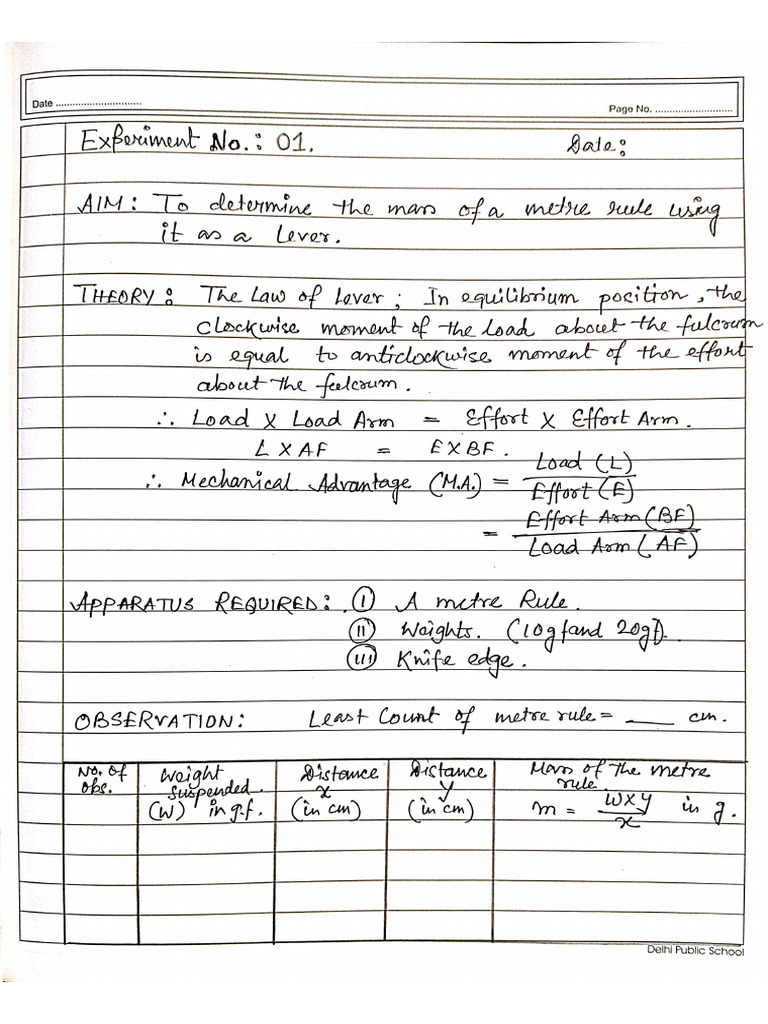 Date ..............................
Page No. ...........................
Experiment No.: 01. Date:
AIM: To determine the mass of a metre rule using
it as a Lever.
THEORY: The Law of Lever; In equilibrium position, the
clockwise moment of the load about the fulcrum
is equal to anticlockwise moment of the effort
about the fulcrum.
∴ Load X Load Arm = Effort X Effort Arm.
L X AF = E X BF.
∴ Mechanical Advantage (M.A.) = Load (L)
Effort (E)
= Effort Arm (BF)
Load Arm (AF)
APPARATUS REQUIRED: (I) A metre Rule.
(II) Weights. (10gf and 20gf).
(III) Knife edge.
OBSERVATION: Least Count of metre rule = ____ cm.
No. of obs.
Weight suspended. (W) in g.f.
Distance x (in cm)
Distance y (in cm)
Mass of the metre rule. m = W X y / x in g.
Delhi Public School